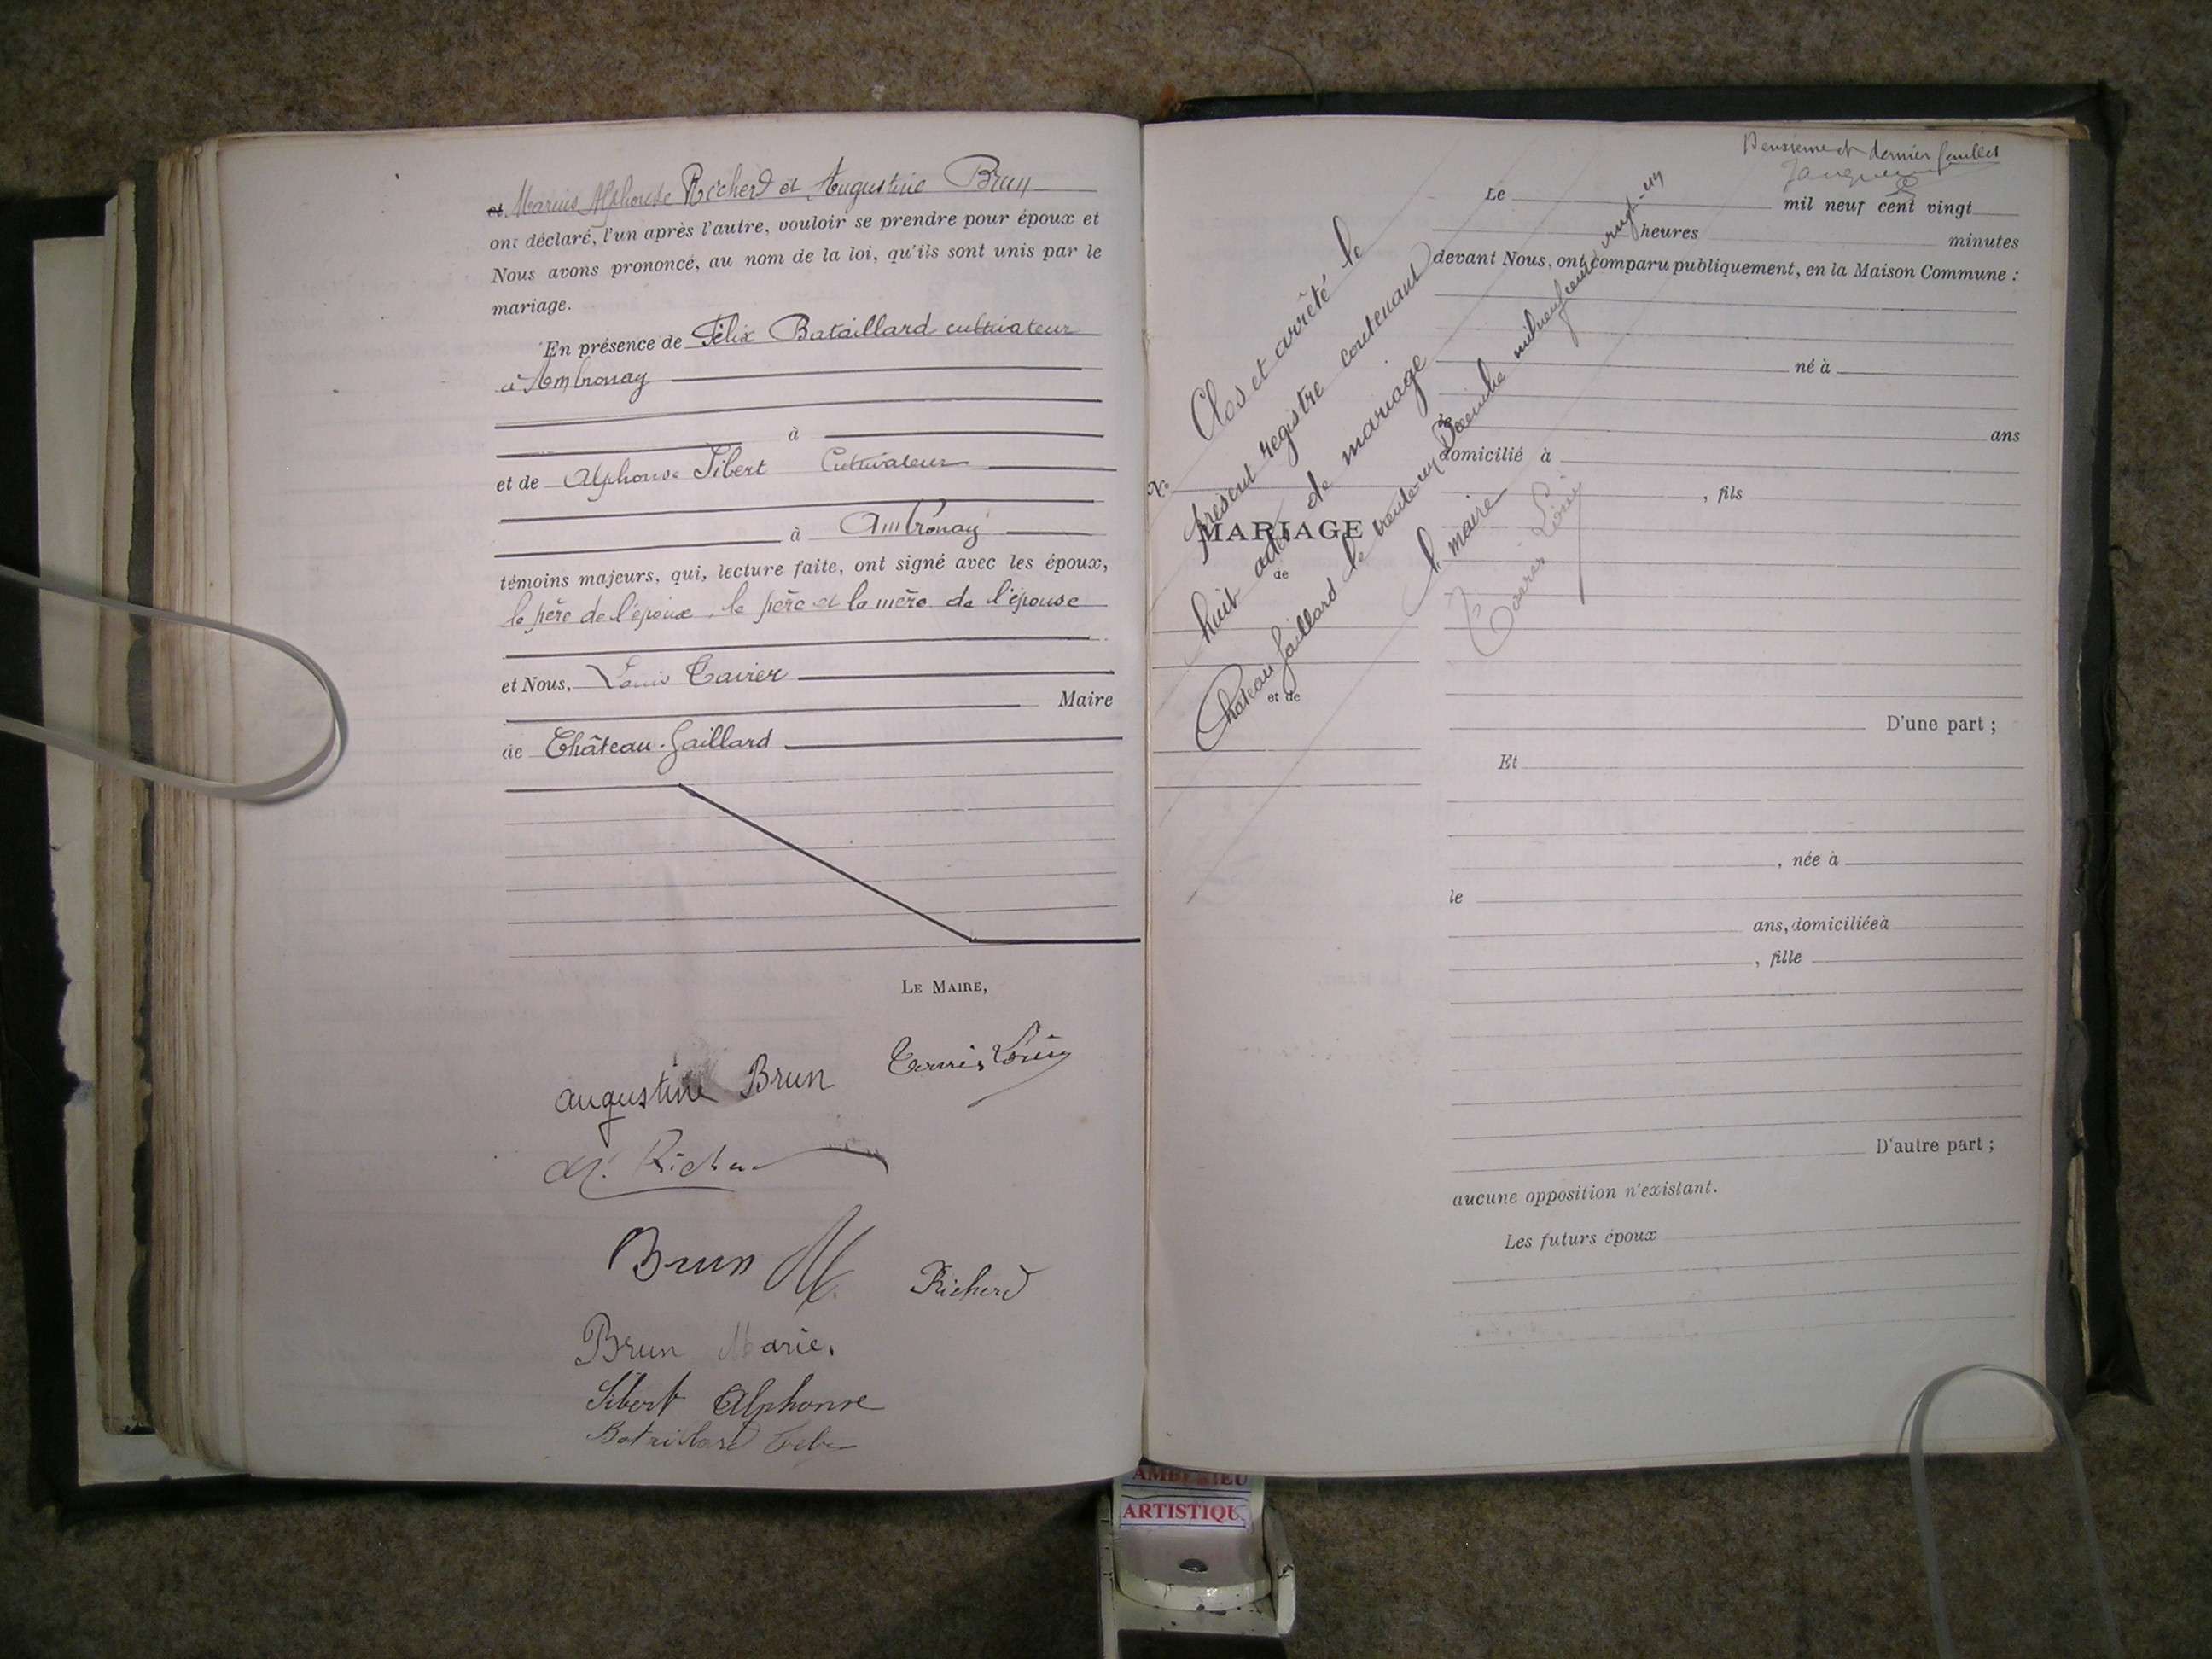 et Marius Alphonse Richerd et Augustine Brun
ont déclaré, l'un après l'autre, vouloir se prendre pour époux et
Nous avons prononcé, au nom de la loi, qu'ils sont unis par le
mariage.
En présence de Félix Bataillard cultivateur
à Ambronay
à
et de Alphonse Sibert Cultivateur
à Ambronay
témoins majeurs, qui, lecture faite, ont signé avec les époux,
le père de l'époux, le père et la mère de l'épouse
et Nous, Louis Tavier
Maire
de Château-Gaillard
LE MAIRE,
Augustine Brun
Louis
Brun M.
Richerd
Brun Marie.
Sibert Alphonse
Bataillard
Deuxième et dernier feuillet
Le mil neuf cent vingt
heures minutes
devant Nous, ont comparu publiquement, en la Maison Commune :
né à
ans
domicilié à
, fils
No
MARIAGE
de
et de
Clos et arrêté le
présent registre contenant
huit actes de mariage
Château Gaillard le trente un Décembre mil neuf cent vingt-un
le maire
Louis
D'une part ;
Et
, née à
le
ans, domiciliée à
, fille
D'autre part ;
aucune opposition n'existant.
Les futurs époux
AMBERIEU
ARTISTIQU